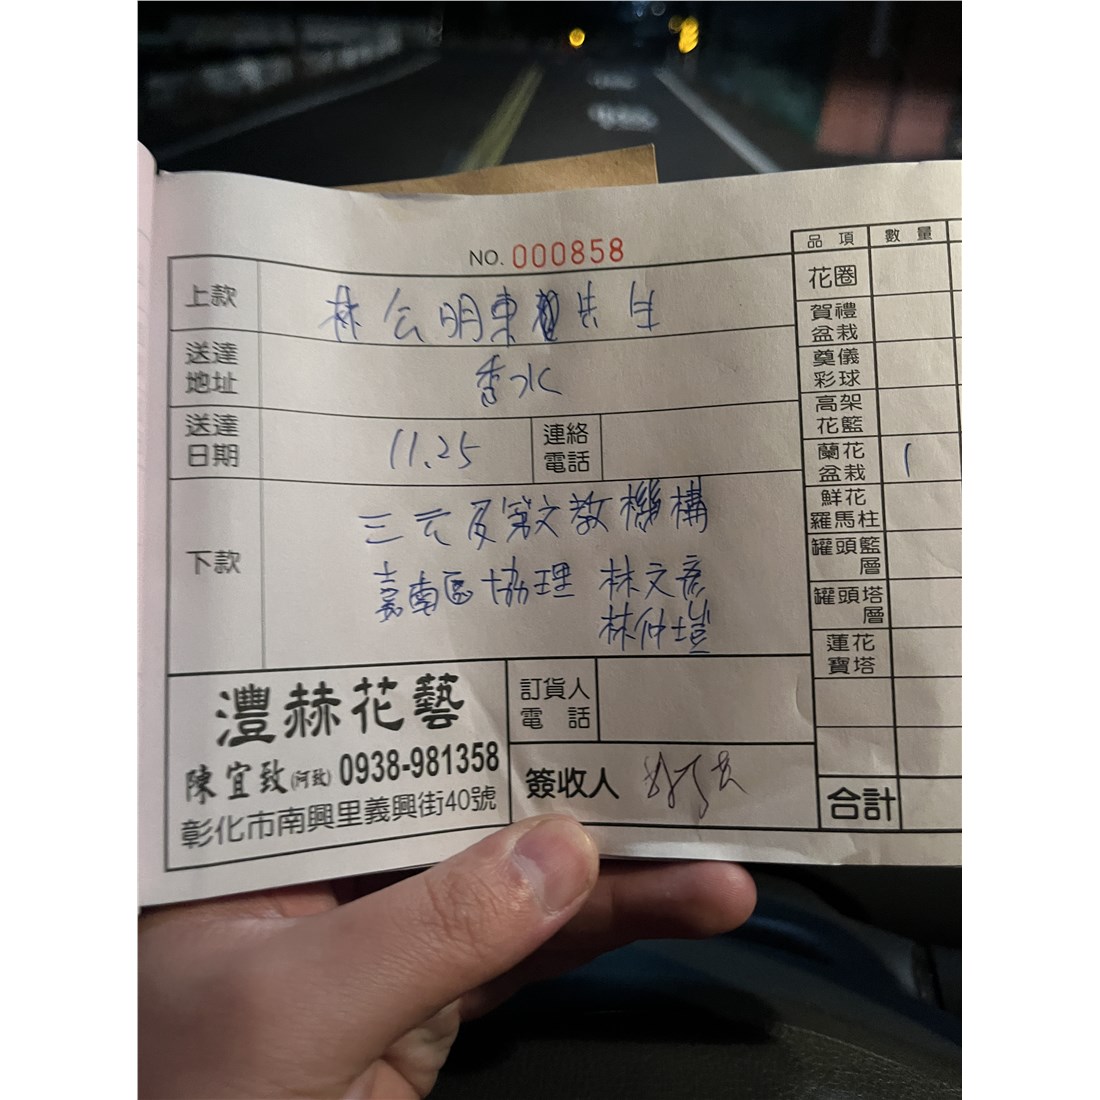 NO. 000858
上款 林公明東先生
送達地址 香水
送達日期 11.25 連絡電話
下款 三元及第文教機構
嘉南區協理 林文彥
林仲塏
灃赫花藝
陳宜致(阿致) 0938-981358
彰化市南興里義興街40號
訂貨人電話
簽收人
品項 數量
花圈
賀禮盆栽
奠儀彩球
高架花籃
蘭花盆栽 1
鮮花羅馬柱
罐頭籃層
罐頭塔層
蓮花寶塔
合計